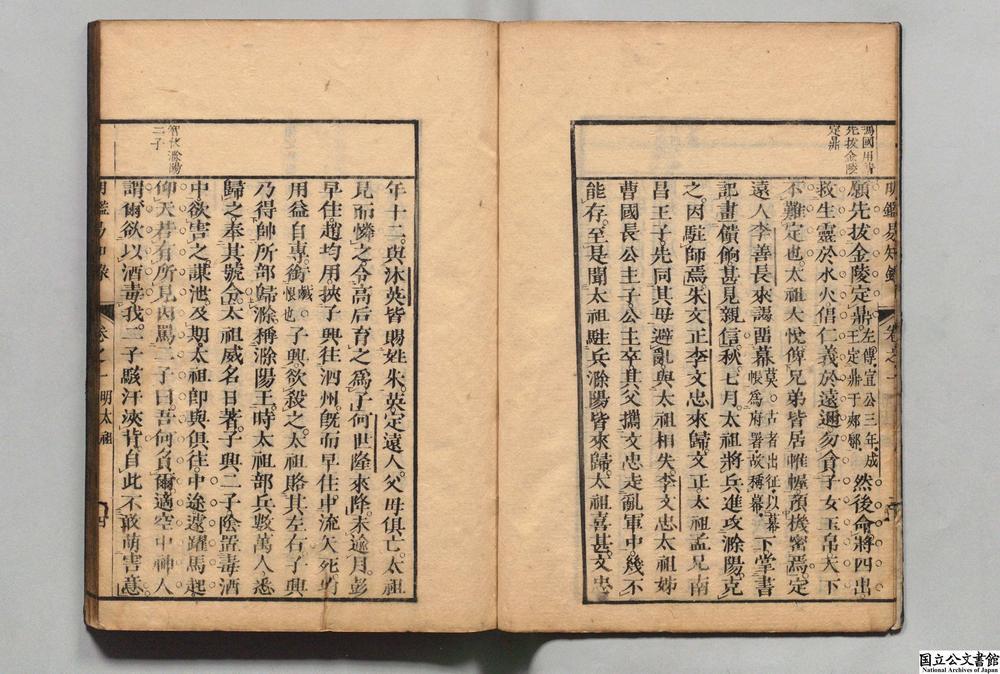 馮國用請
先拔金陵
定鼎
明鑑易知錄 卷之一
願先拔金陵定鼎。左傳宣公三年。成王定鼎于郟鄏。然後命將四出
救生靈於水火倡仁義於遠邇勿貪子女玉帛天下
不難定也太祖大悅俾兄弟皆居帷幄預機密焉。定
遠人李善長來謁畱幕莫。古者出征以幕帳爲府署故稱幕。下掌書
記畫饋餉甚見親信。秋七月太祖將兵進攻滁陽克
之。因駐師焉。朱文正李文忠來歸。文正太祖孟兄南
昌王子。先同其母避亂與太祖相失。李文忠太祖姊
曹國長公主子公主卒其父攜文忠走亂軍中。幾不
能存。至是聞太祖駐兵滁陽皆來歸。太祖喜甚。文忠
年十二。與沐英皆賜姓朱。英定遠人。父母俱亡。太祖
見而憐之令高后育之爲子。何世隆來降。未逾月。彭
早住。趙均用。挾子興往泗州。旣而早住中流矢死均
用益自專。銜恨也。子興。欲殺之。太祖賂其左右子興
乃得帥所部歸滁稱滁陽王。時太祖部兵數萬人悉
歸之。奉其號令。太祖威名日著。子興二子陰置毒酒
中欲害之。謀泄。及期。太祖卽與俱往。中途遽躍馬起
仰天若有所見因罵二子曰吾何負爾適空中神人
謂爾欲以酒毒我。二子駭汗浹背。自此不敢萌害意。
滁陽
二子
明鑑易知錄 卷之一 明太祖
国立公文書館
National Archives of Japan